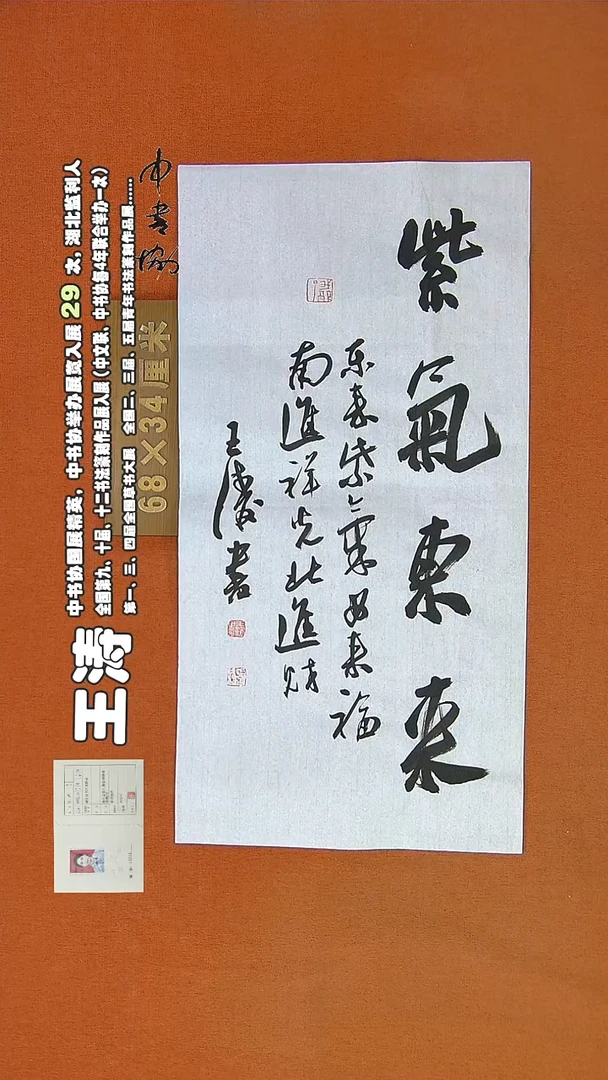 紫氣東来
东来紫氣西来福
南進祥光北進财
王濤書
中书协
68×34厘米
王涛
中书协国展精英，中书协举办展赛入展 29 次，湖北监利人
全国第九、十届、十二书法篆刻作品展入展（中文联、中书协每4年联合举办一次）
第一、三、四届全国草书大展 全国二、三届、五届青年书法篆刻作品展......